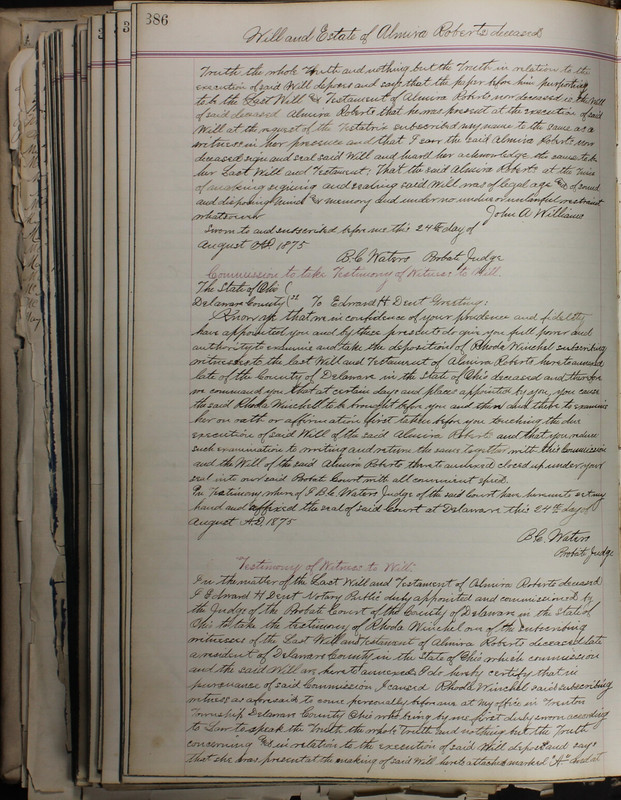 386
Will and Estate of Almira Roberts deceased
Truth the whole Truth and nothing but the Truth in relation to the
execution of said Will deposes and says that the paper before him purporting
to be the Last Will & Testament of Almira Roberts now deceased is the Will
of said deceased Almira Roberts that he was present at the execution of said
Will at the request of the Testatrix subscribed my name to the same as a
witness in her presence and that I saw the said Almira Roberts now
deceased sign and seal said Will and heard her acknowledge the same to be
her Last Will and Testament. That the said Almira Roberts at the time
of making signing and sealing said Will was of legal age & of sound
and disposing mind & memory and under no undue or unlawful restraint
whatsoever John A Williams
Sworn to and subscribed before me this 24th day of
August AD 1875
B.C. Waters Probate Judge
Commission to take Testimony of Witness to Will.
The State of Ohio (
Delaware County ( ss To Edward H Dent Greeting:
Know ye that we in confidence of your prudence and fidelity
have appointed you and by these presents do give you full power and
authority to examine and take the deposition of Rhoda Winchel subscribing
witness to the last Will and Testament of Almira Roberts hereto annexed
late of the County of Delaware in the State of Ohio deceased and therefore
we command you that at certain days and places appointed by you, you cause
the said Rhoda Winchel to be brought before you and then and there to examine
her on oath or affirmation first taken before you touching the due
execution of said Will of the said Almira Roberts and that you reduce
such examination to writing and return the same together with this Commission
and the Will of the said Almira Roberts thereto annexed closed up under your
seal into our said Probat Court with all convenient speed.
In Testimony whereof I B.C. Waters Judge of the said Court have hereunto set my
hand and affixed the seal of said Court at Delaware this 24th day of
August A.D. 1875
B.C. Waters
Probate Judge
Testimony of Witness to Will
In the matter of the Last Will and Testament of Almira Roberts deceased
I Edward H Dent Notary Public duly appointed and commissioned by
the Judge of the Probate Court of the County of Delaware in the State of
Ohio to take the testimony of Rhoda Winchel one of the subscribing
witnesses of the Last Will and Testament of Almira Roberts deceased late
a resident of Delaware County in the State of Ohio which commission
and the said Will are hereto annexed I do hereby certify that in
pursuance of said Commission I caused Rhoda Winchel said subscribing
witness as aforesaid to come personally before me at my office in Trenton
Township Delaware County Ohio who being by me first duly sworn according
to Law to speak the Truth the whole Truth and nothing but the Truth
concerning & in relation to the execution of said Will deposes and says
that she was present at the making of said Will hereto attached marked "A" dated at